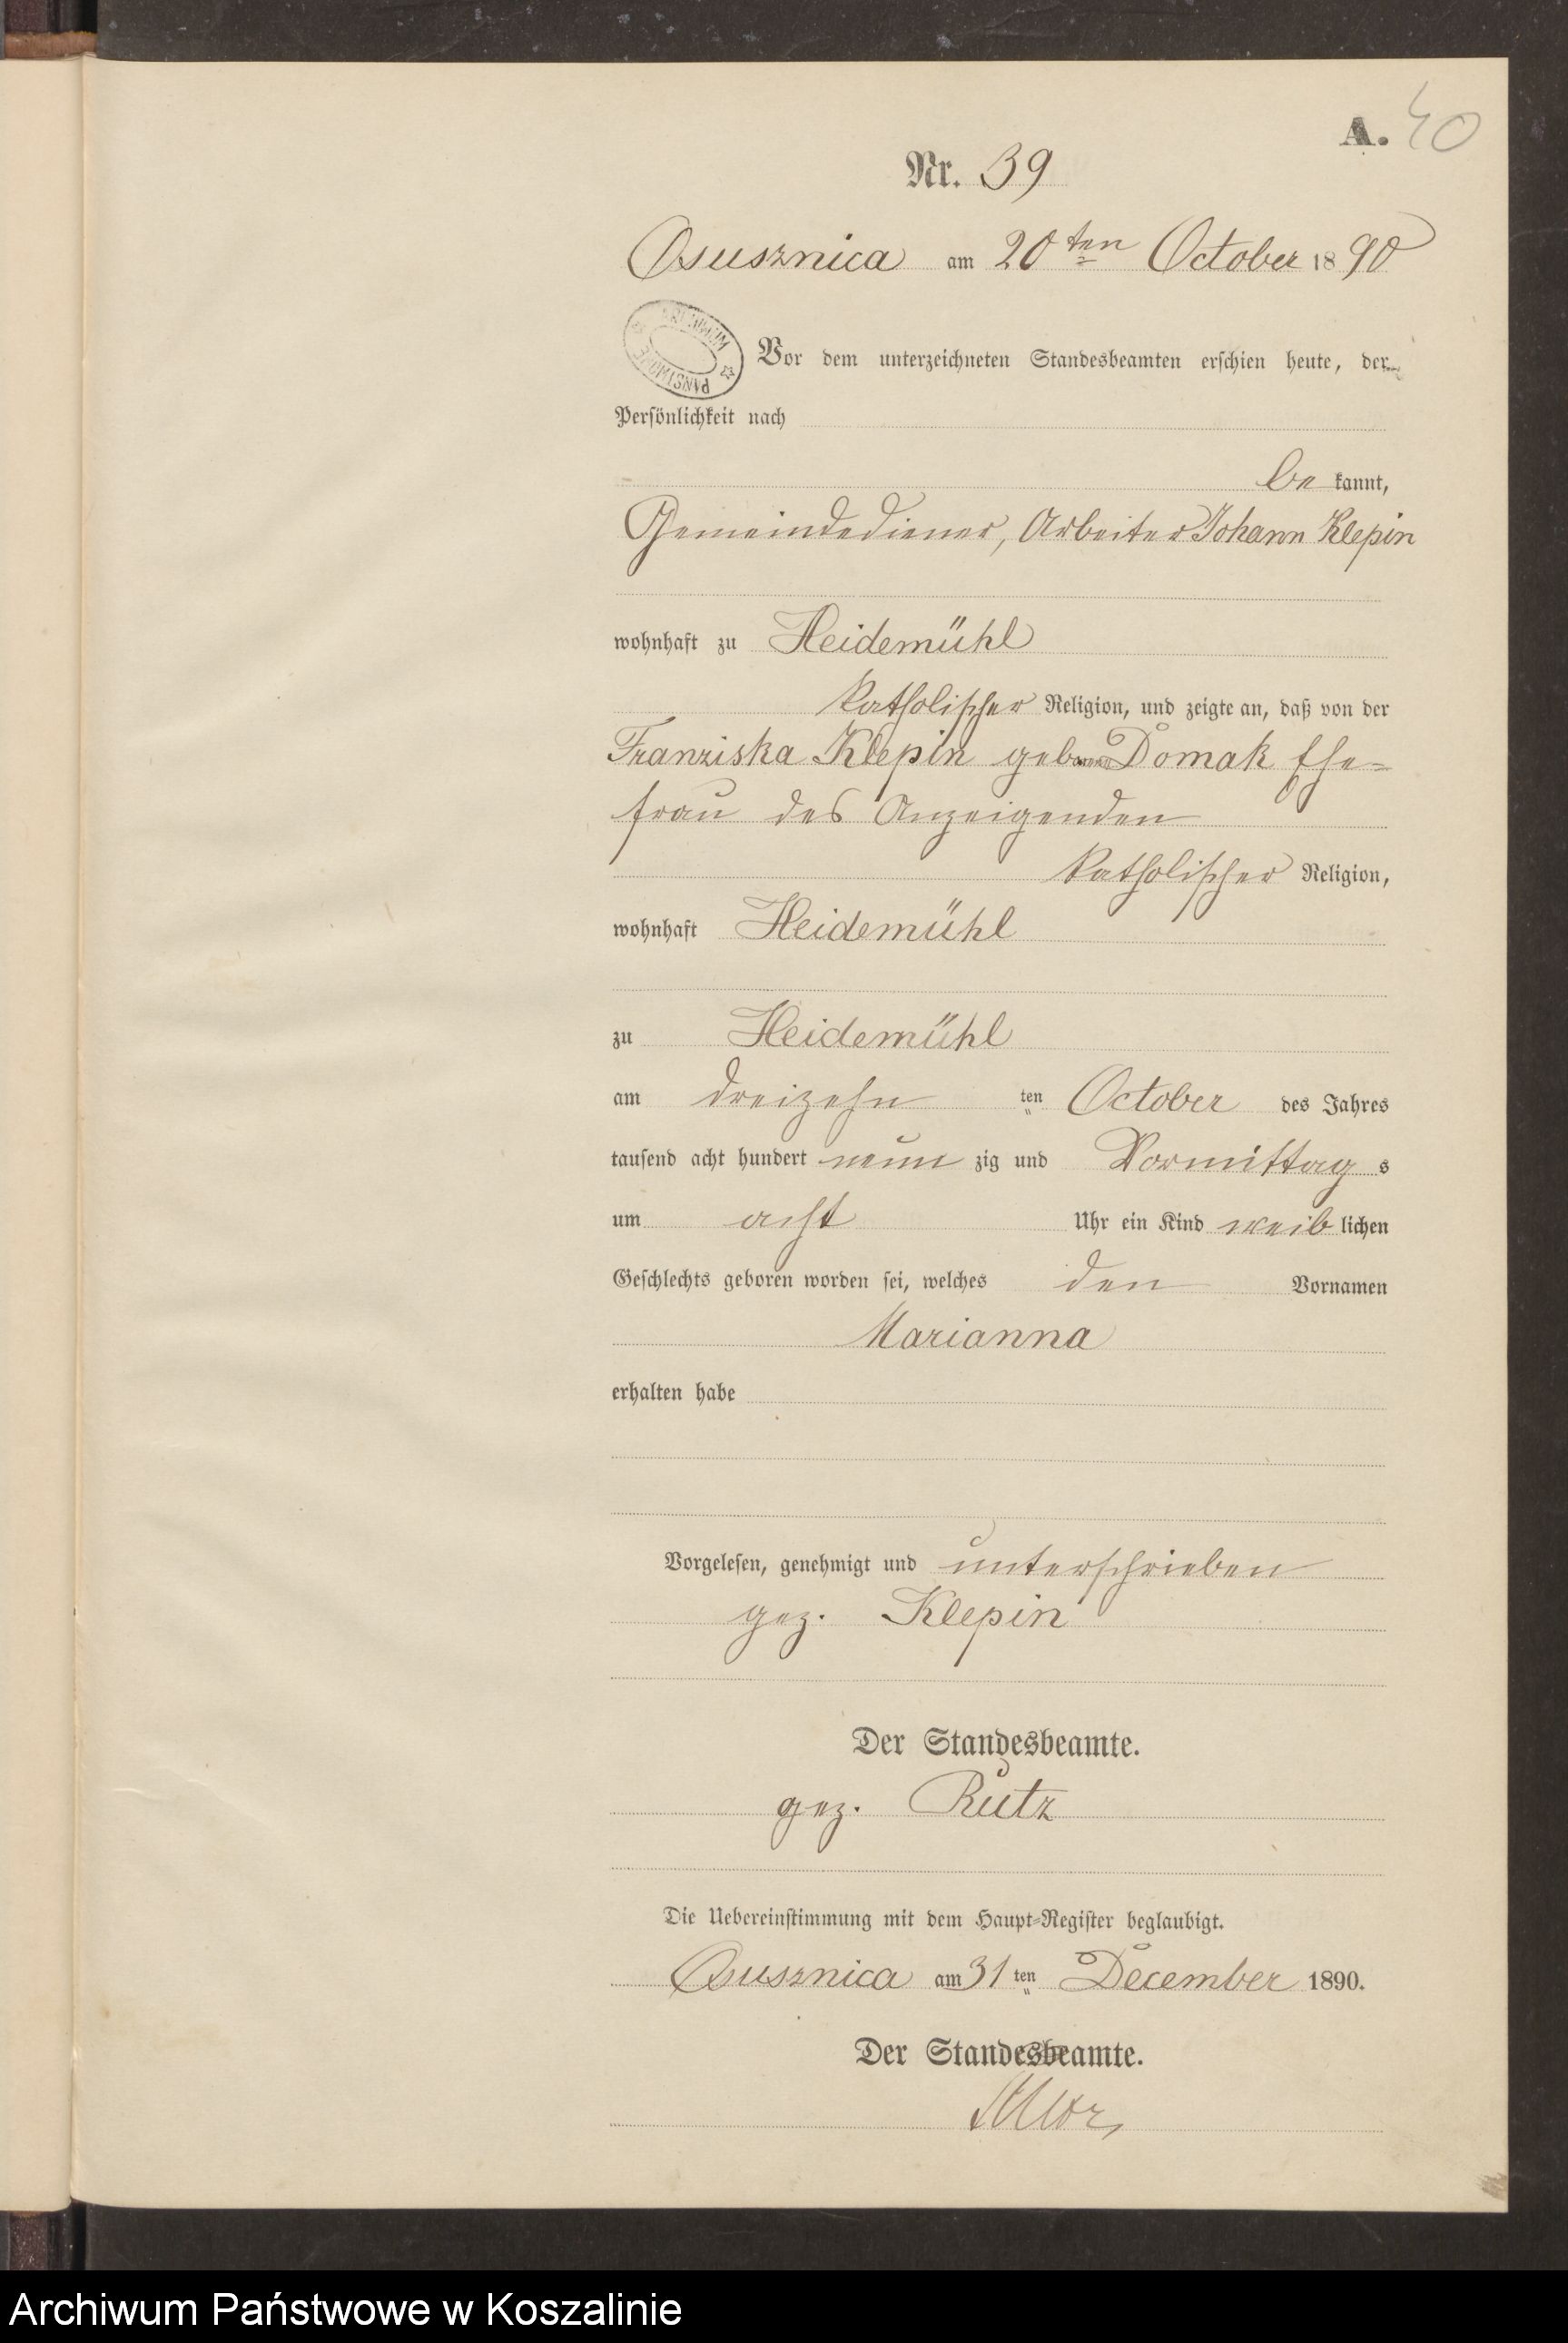 A. 40
Nr. 39
Osusznica am 20ten October 1890
ARCHIWUM PAŃSTWOWE
Vor dem unterzeichneten Standesbeamten erschien heute, der
Persönlichkeit nach
be kannt,
Gemeindediener, Arbeiter Johann Klepin
wohnhaft zu Heidemühl
katholischer Religion, und zeigte an, daß von der
Franziska Klepin geborne Domak Ehe-
frau des Anzeigenden
katholischer Religion,
wohnhaft Heidemühl
zu Heidemühl
am dreizehn ten October des Jahres
tausend acht hundert neun zig und Vormittag s
um acht Uhr ein Kind weib lichen
Geschlechts geboren worden sei, welches den Vornamen
Marianna
erhalten habe
Vorgelesen, genehmigt und unterschrieben
gez. Klepin
Der Standesbeamte.
gez. Rutz
Die Uebereinstimmung mit dem Haupt-Register beglaubigt.
Osusznica am 31 ten December 1890.
Der Standesbeamte.
Archiwum Państwowe w Koszalinie